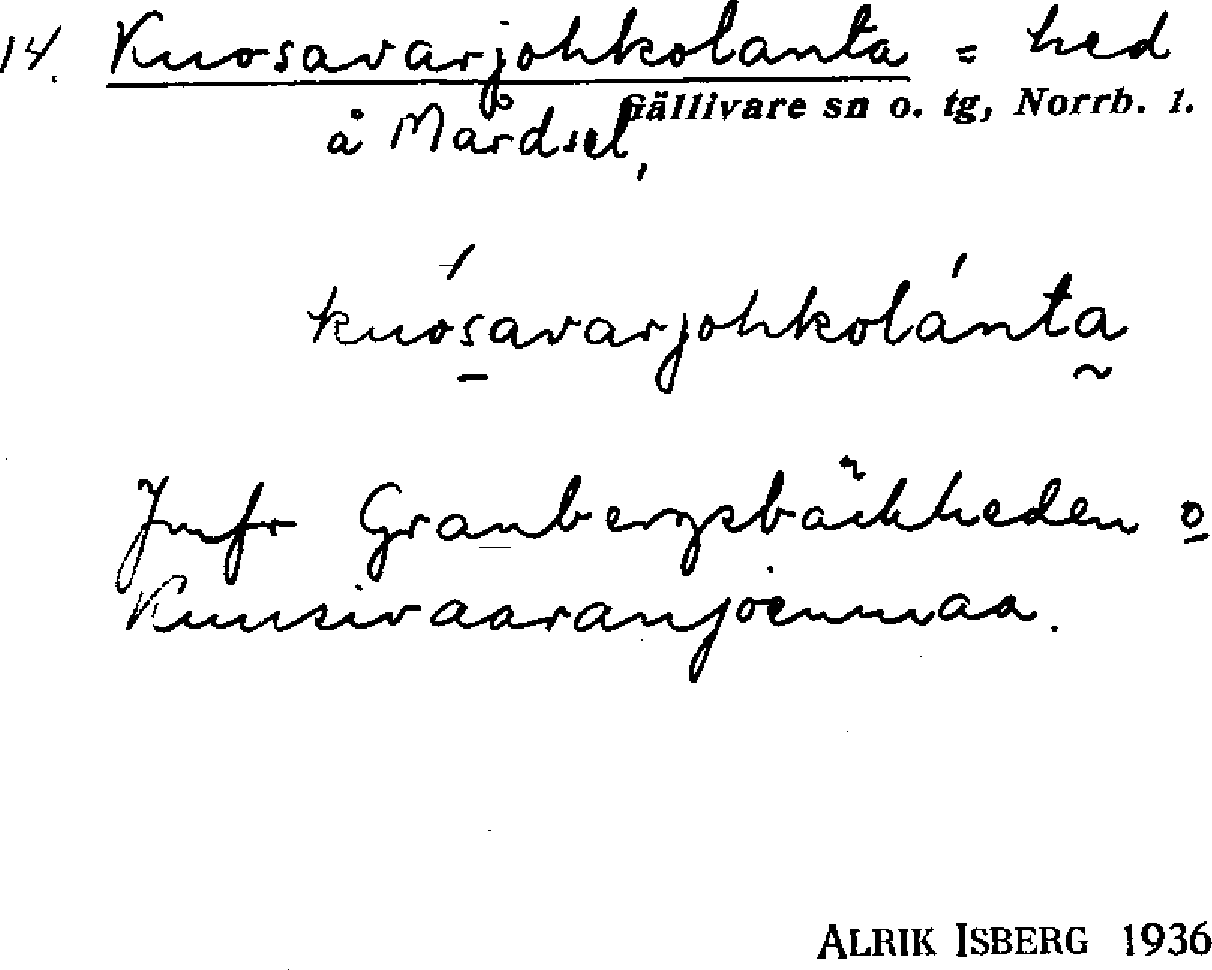 14. Kuosavarjohkolanta = hed
Gällivare sn o. tg, Norrb. l.
å Mårdsel,
kuosavarjohkolánta
Jmfr Granbergsbäckheden o
Kuusivaaranjoenmaa.
ALRIK ISBERG 1936